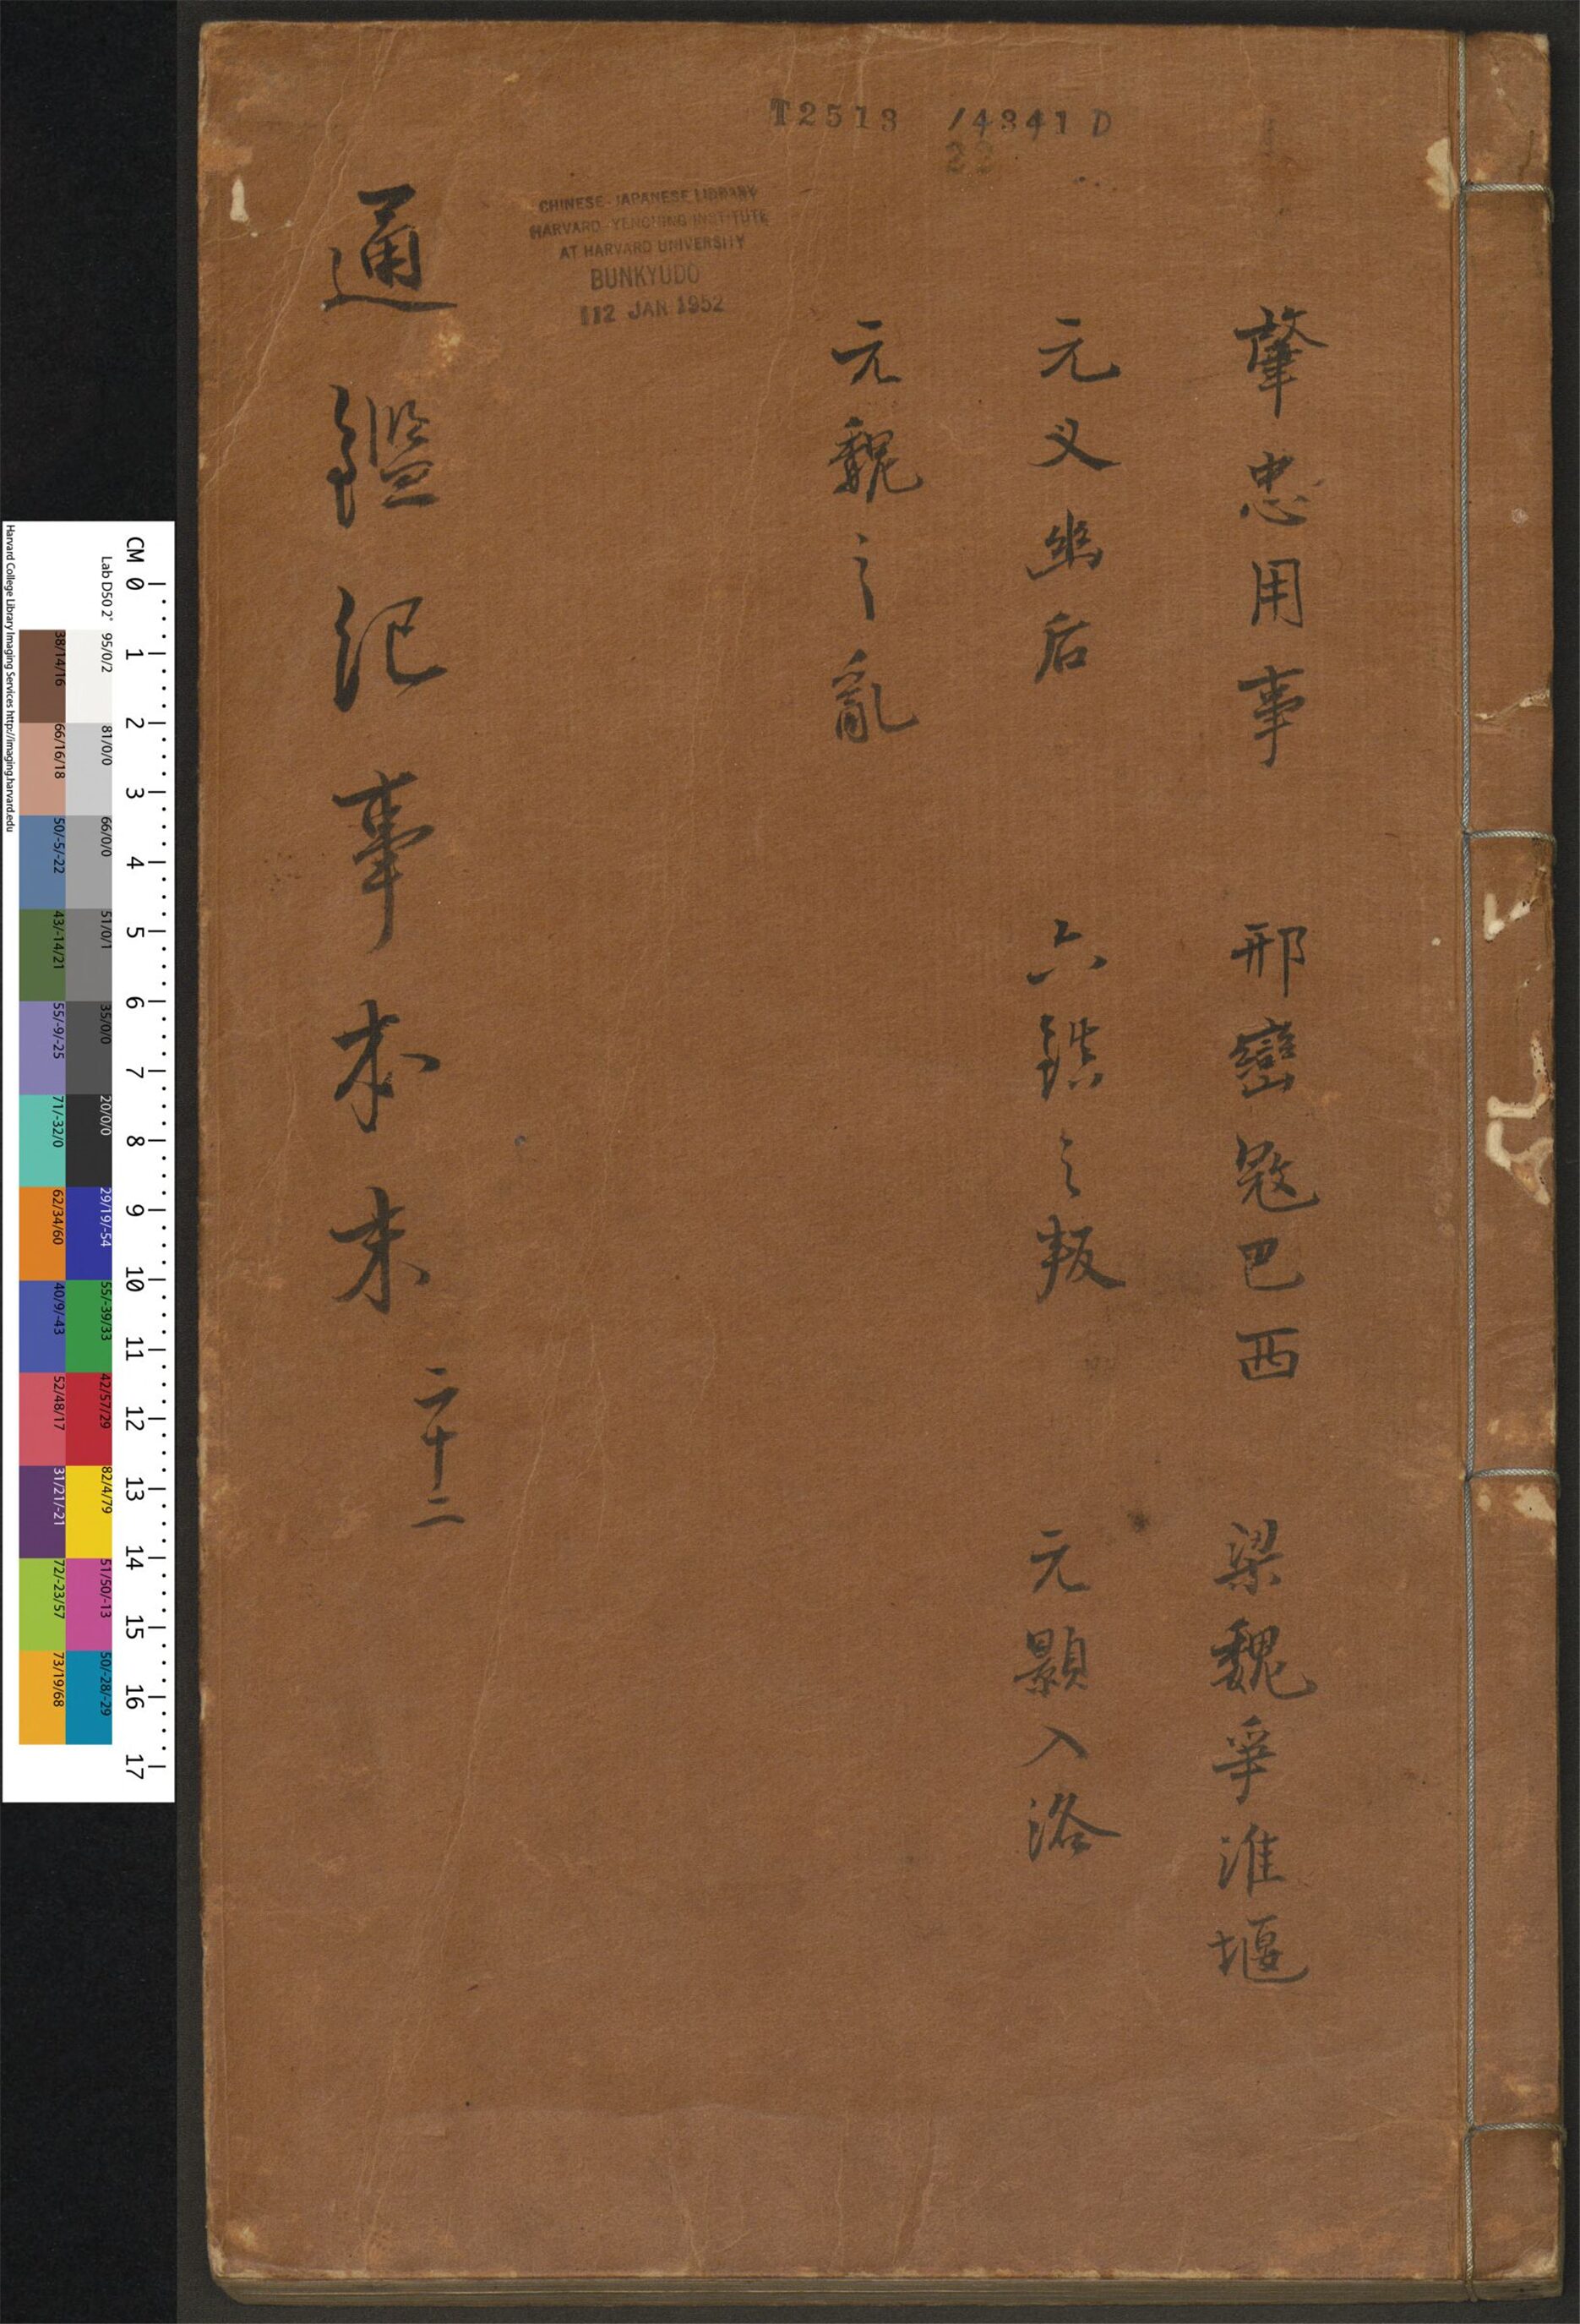 T2513 /4341 D
22
CHINESE-JAPANESE LIBRARY
HARVARD-YENCHING INSTITUTE
AT HARVARD UNIVERSITY
BUNKYUDO
12 JAN 1952
肇忠用事 邢巒寇巴西 梁魏爭淮堰
元义幽后 六鎮之叛 元顥入洛
元魏之亂
通鑑記事本末 二十二
CM 0 1 2 3 4 5 6 7 8 9 10 11 12 13 14 15 16 17
Lab D50 2° 95/0/2 81/0/0 66/0/0 51/0/1 35/0/0 20/0/0 29/19/-54 55/-39/33 42/57/29 82/4/79 51/50/-13 50/-28/-29
38/14/16 66/16/18 50/-5/-22 43/-14/21 55/-9/-25 71/-32/0 62/34/60 40/9/-43 52/48/17 31/21/-21 72/-23/57 73/19/68
Harvard College Library Imaging Services http://imaging.harvard.edu